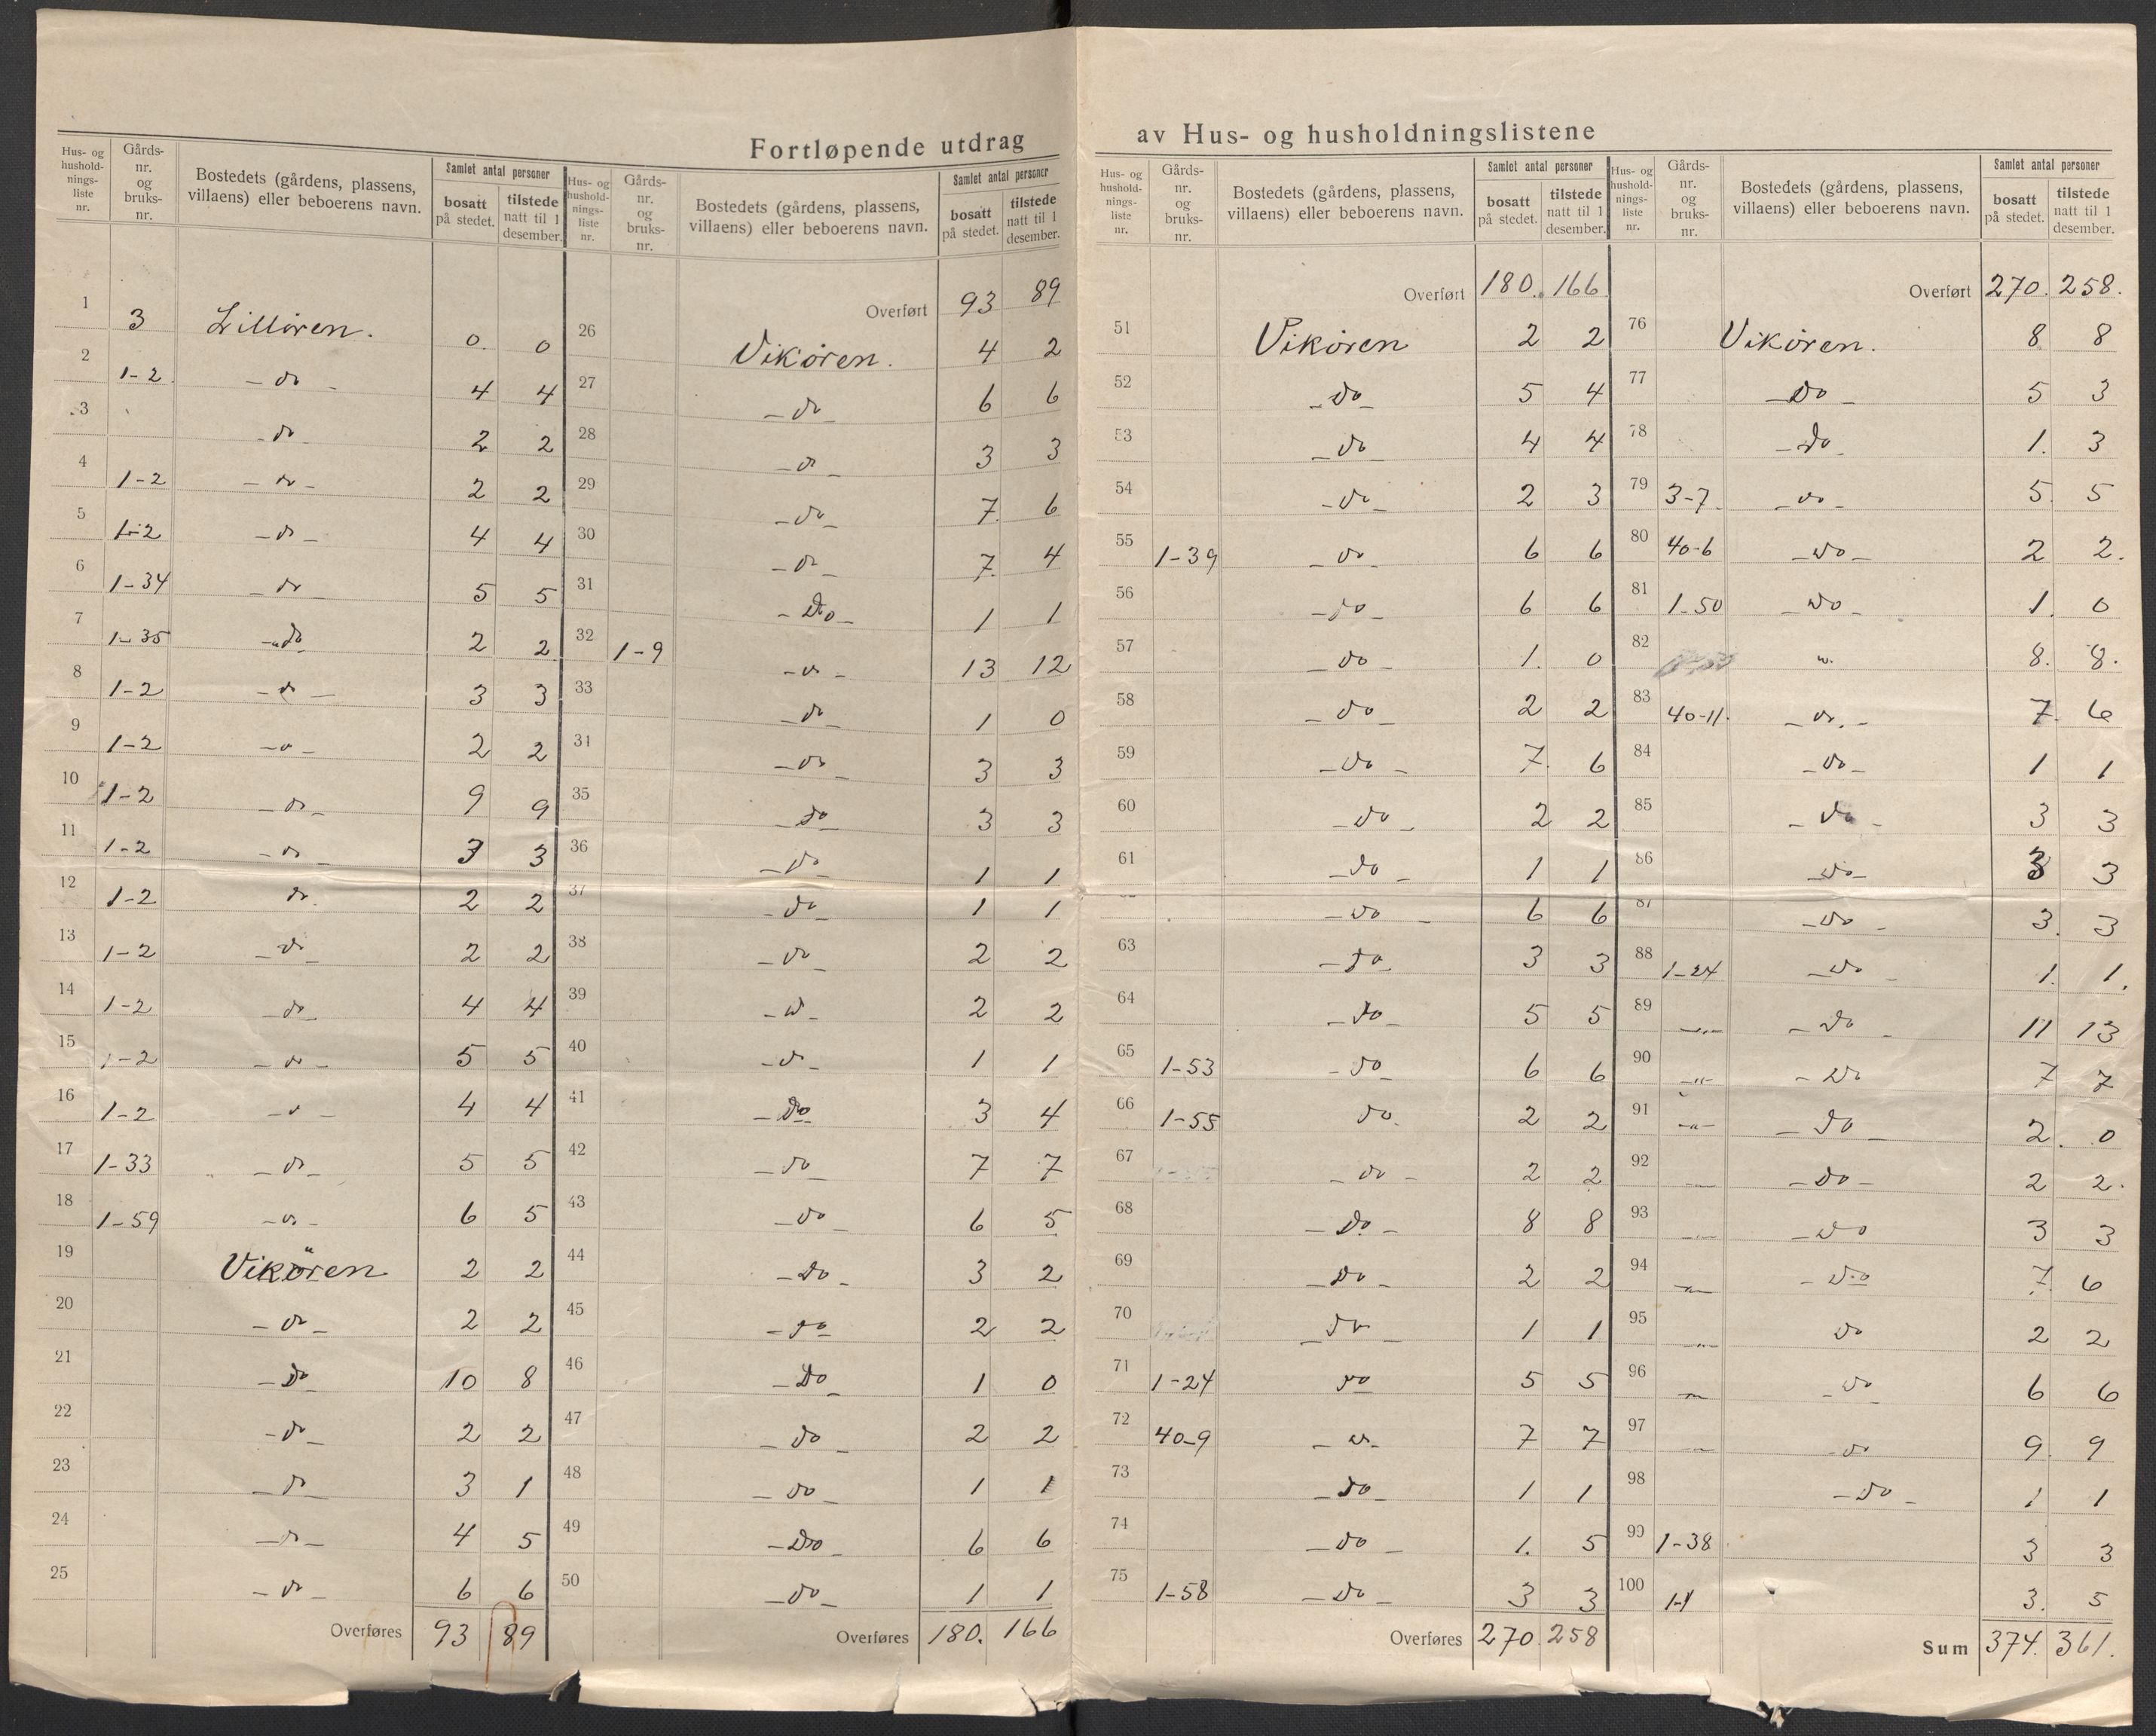 Fortløpende utdrag av Hus- og husholdningslistene
Hus- og hushold-nings-liste nr. Gårds-nr. og bruks-nr. Bostedets (gårdens, plassens, villaens) eller beboerens navn. Samlet antal personer bosatt på stedet. tilstede natt til 1 desember.
1 3 Lillören. 0. 0
2 1-2 -do- 4 4
3 -do- 2 2
4 1-2 -do- 2 2
5 1-2 -do- 4 4
6 1-34 -do- 5 5
7 1-35 -do- 2 2
8 1-2 -do- 3 3
9 1-2 -do- 2 2
10 1-2 -do- 9 9
11 1-2 -do- 3 3
12 1-2 do. 2 2
13 1-2 -do- 2 2
14 1-2 -do- 4 4
15 1-2 -do- 5 5
16 1-2 -do- 4 4
17 1-33 -do- 5 5
18 1-59 -do- 6 5
19 Vikören 2 2
20 -do- 2 2
21 -Do- 10 8
22 -do- 2 2
23 -do- 3 1
24 -do- 4 5
25 -do- 6 6
Overføres 93 89
Hus- og hushold-nings-liste nr. Gårds-nr. og bruks-nr. Bostedets (gårdens, plassens, villaens) eller beboerens navn. Samlet antal personer bosatt på stedet. tilstede natt til 1 desember.
Overført 93 89
26 Vikören. 4 2
27 -do- 6 6
28 -do- 3 3
29 -do- 7 6
30 -do- 7. 4
31 -Do- 1 1
32 1-9 -do- 13 12
33 -do- 1 0
34 -do- 3 3
35 -do- 3 3
36 -do- 1 1
37 -do- 1 1
38 -do- 2 2
39 -do- 2 2
40 -do- 1 1
41 -Do- 3 4
42 -do- 7 7
43 -do- 6 5
44 -Do- 3 2
45 -do- 2 2
46 -Do- 1 0
47 -do- 2 2
48 -do- 1 1
49 -Do- 6 6
50 -do- 1 1
Overføres 180. 166
Hus- og hushold-nings-liste nr. Gårds-nr. og bruks-nr. Bostedets (gårdens, plassens, villaens) eller beboerens navn. Samlet antal personer bosatt på stedet. tilstede natt til 1 desember.
Overført 180. 166
51 Vikören 2 2
52 -do- 5 4
53 -do- 4 4
54 -do- 2 3
55 1-39 -do- 6 6
56 -do- 6 6
57 -do- 1. 0
58 -do- 2 2
59 -do- 7. 6
60 -do- 2 2
61 -do- 1 1
-do- 6 6
63 -do- 3 3
64 -do- 5 5
65 1-53 -do- 6 6
66 1-55 do. 2 2
67 -do- 2 2
68 -Do- 8 8
69 -Do- 2 2
70 -do- 1 1
71 1-24 do 5 5
72 40-9 -do- 7 7
73 -do- 1 1
74 -do- 1. 5
75 1-58 -Do- 3 3
Overføres 270 258
Hus- og hushold-nings-liste nr. Gårds-nr. og bruks-nr. Bostedets (gårdens, plassens, villaens) eller beboerens navn. Samlet antal personer bosatt på stedet. tilstede natt til 1 desember.
Overført 270. 258.
76 Vikören. 8 8
77 -Do- 5 3
78 -do- 1. 3
79 3-7. -do- 5. 5
80 40-6 -do- 2 2.
81 1-50 -do- 1. 0
82 do. 8. 8.
83 40-11. -do.- 7. 6
84 -do- 1 1
85 -do- 3 3
86 -do- 3 3
87 -do- 3. 3
88 1-24 -do- 1. 1.
89 -„- -do- 11 13
90 -„- -do 7 7
91 -„- -do- 2. 0
92 -„- -Do- 2 2.
93 -„- -do 3 3
94 -„- -do 7. 6
95 -„- do 2 2
96 -„- -do- 6 6
97 -„- -do 9. 9
98 -do- 1 1
99 1-38 3 3
100 1-1 3. 5
Sum 374. 361.